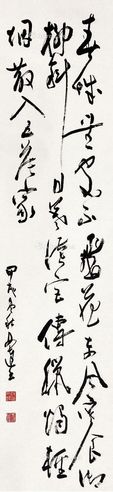 春城無處不飛花東風寒食御
柳斜日暮漢宮傳蠟燭輕
烟散入五侯家
甲戌年